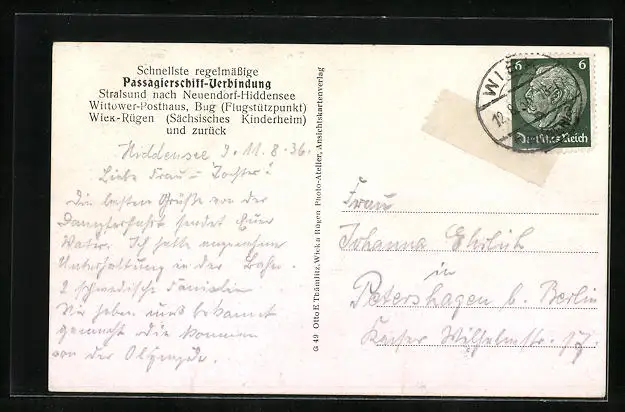 Schnellste regelmäßige
Passagierschiff-Verbindung
Stralsund nach Neuendorf-Hiddensee
Wittower-Posthaus, Bug (Flugstützpunkt)
Wiek-Rügen (Sächsisches Kinderheim)
und zurück
Hiddensee d. 11.8.36.
Liebe Frau u. Tochter!
Die besten Grüße von der
Dampferfahrt sendet Euer
Vater. Ich hatte angenehme
Unterhaltung in der Bahn.
2 schwedische
Wir haben uns bekannt
gemacht die kommen
von der Olympade.
G 49 Otto E Thämlitz, Wiek a Rügen Photo-Atelier, Ansichtskartenverlag
WIE
12.8.36
6 6
Deutsches Reich
Frau
Johanna Ehrlich
in
Petershagen b. Berlin
Kaiser Wilhelmstr. 17.